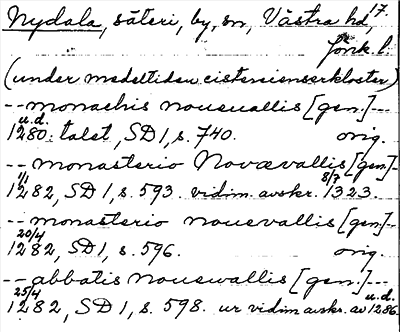 Nydala, säteri, by, sn, Västra hd, 17.
Jönk. l.
(under medeltiden cistersienserkloster)
-- monachis noueuallis [gen.] --
u.d.
1280: talet, SD 1, s. 740. orig.
-- monasterio Novævallis [gen.] -
1/1 8/7
1282, SD 1, s. 593. vidim. avskr. 1323.
-- monasterio nouevallis [gen.] -
20/4
1282, SD 1, s. 596. orig.
-- abbatis nouewallis [gen.] --
25/4 u.d.
1282, SD 1, s. 598. ur vidim avskr. av 1286.